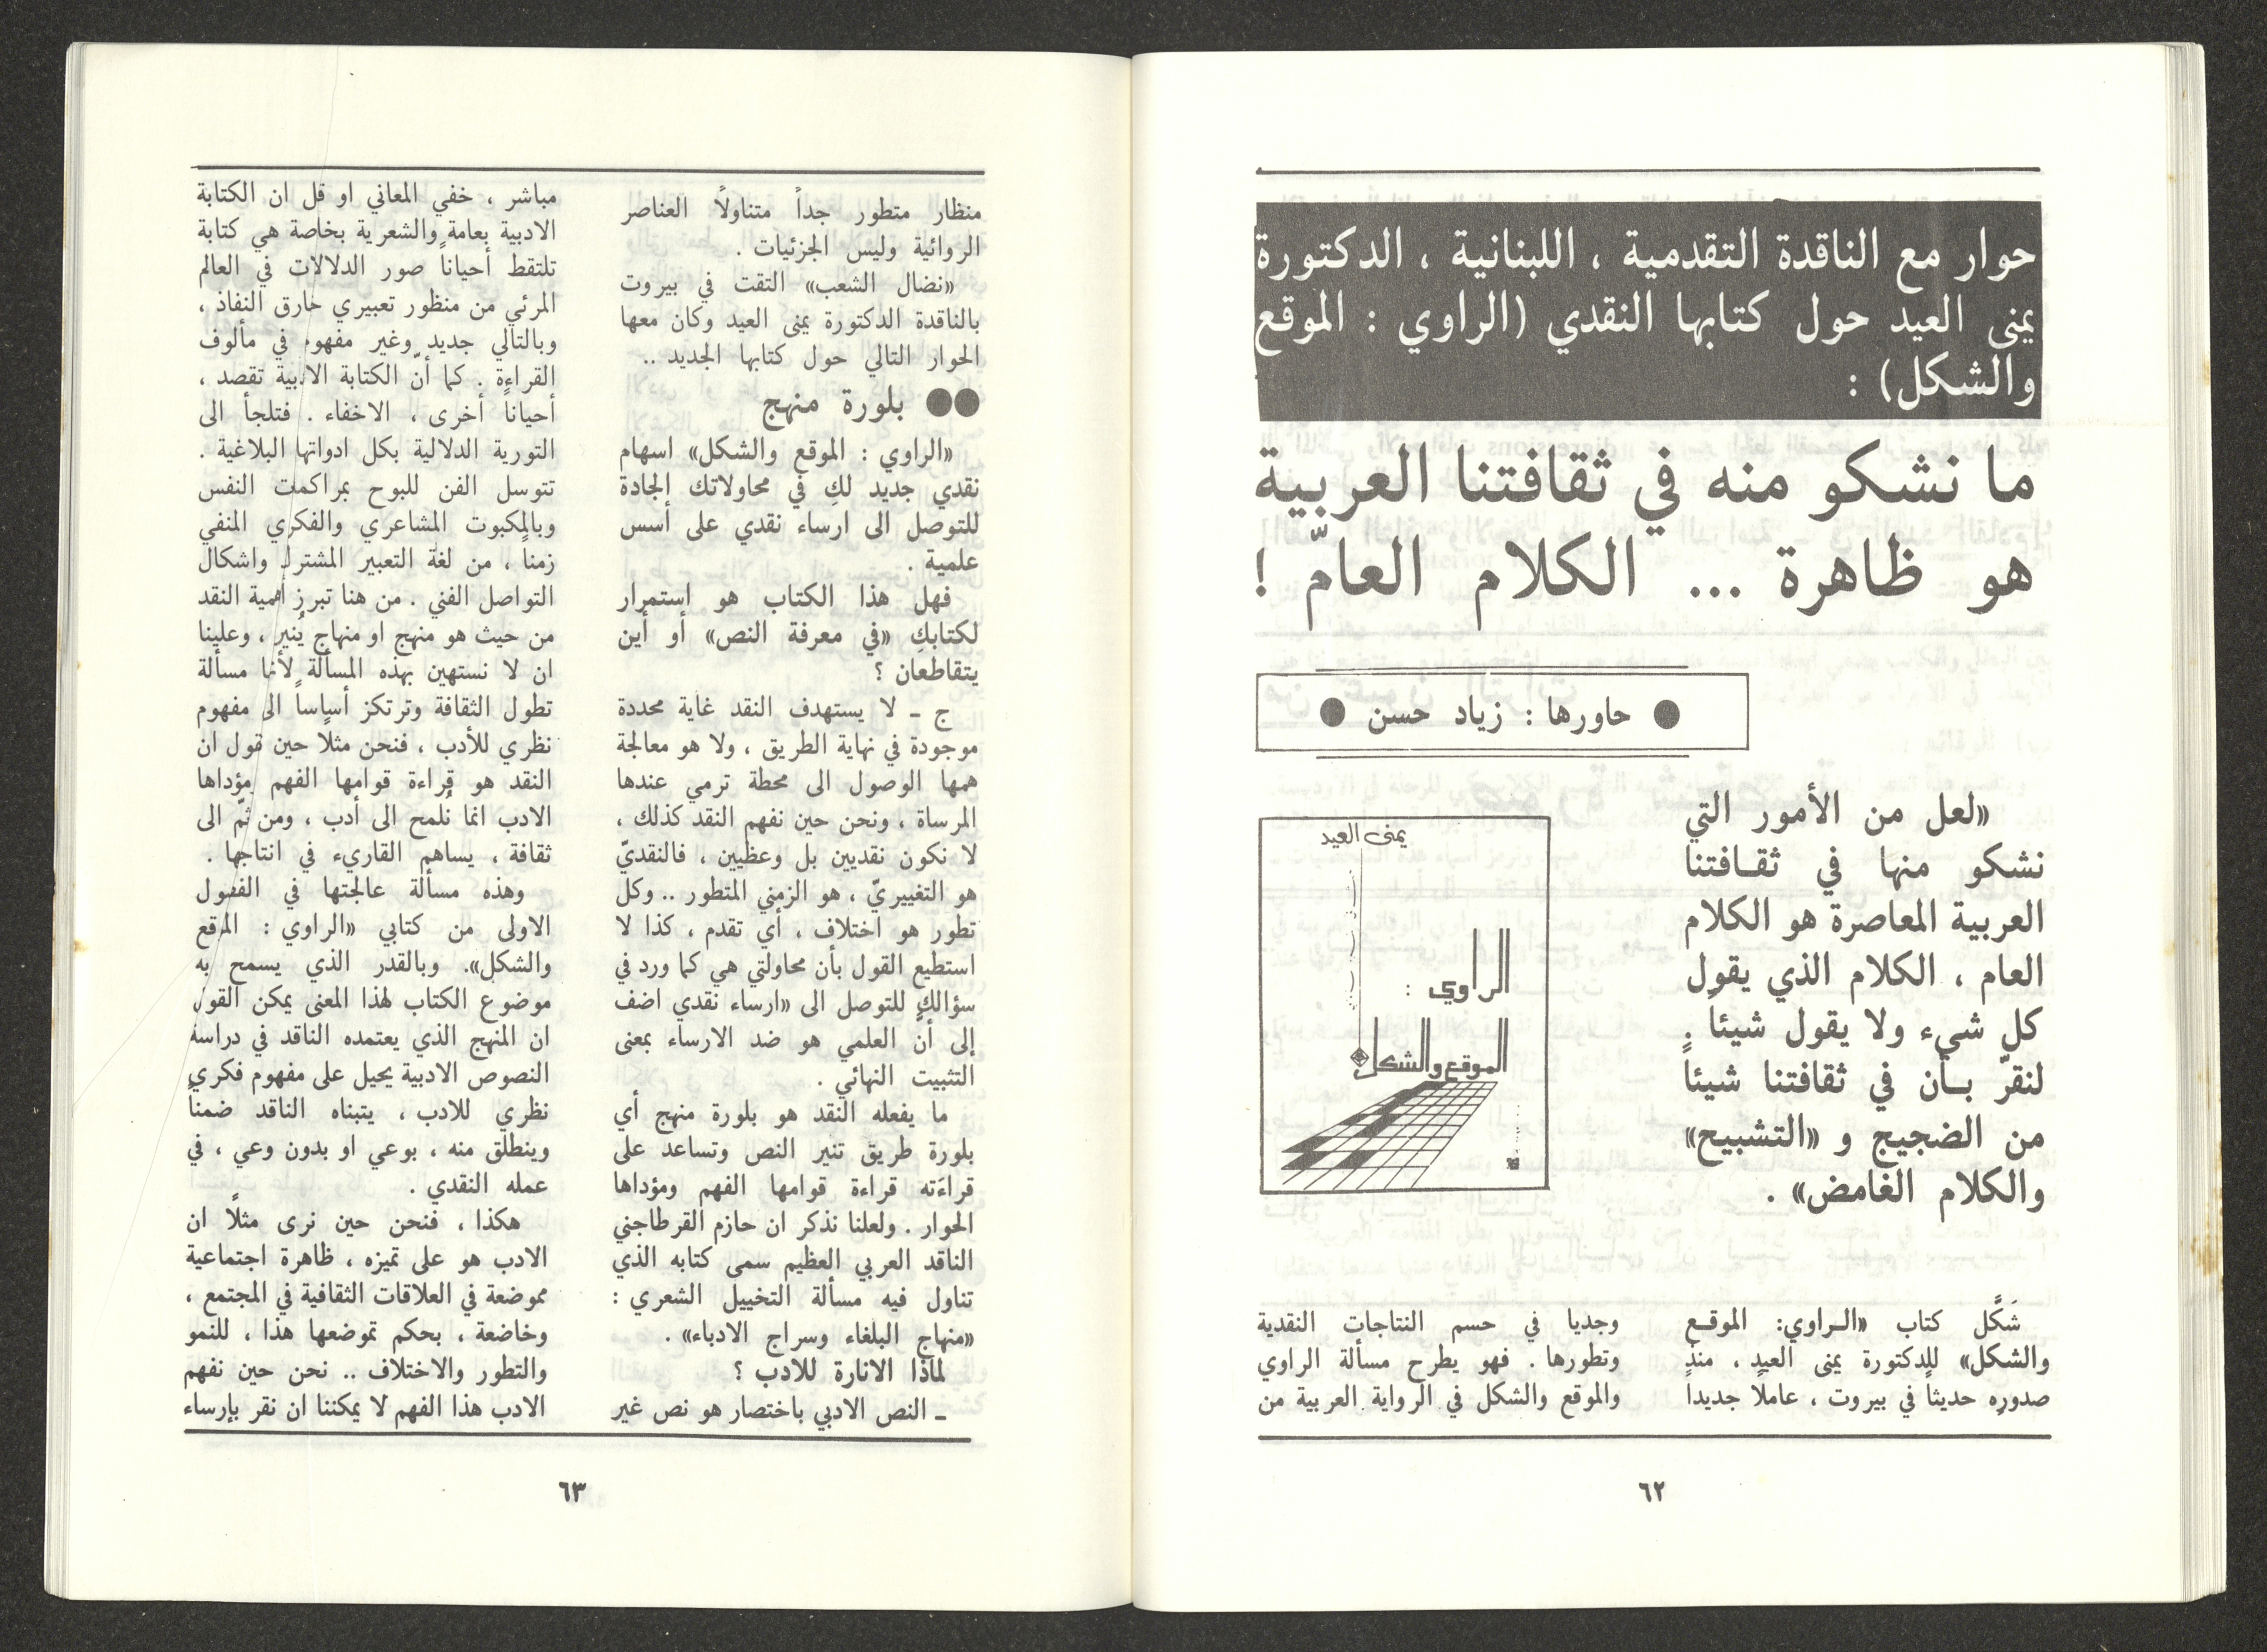 حوار مع الناقدة التقدمية ، اللبنانية ، الدكتورة
يمنى العيد حول كتابها النقدي (الراوي : الموقع
والشكل) :
ما نشكو منه في ثقافتنا العربية
هو ظاهرة ... الكلام العامّ !
● حاورها : زياد حسن ●
«لعل من الأمور التي
نشكو منها في ثقـافتنا
العربية المعاصرة هو الكلام
العام ، الكلام الذي يقول
كل شيء ولا يقول شيئاً .
لنقرّ بـأن في ثقافتنا شيئاً
من الضجيج و «التشبيح»
والكلام الغامض» .
يمنى العيد
الراوي :
الموقع والشكل
شَكَّل كتاب «الـراوي: الموقـع
والشكل» للدكتورة يمنى العيد ، منذ
صدوره حديثاً في بيروت ، عاملاً جديداً
وجديا في حسم النتاجات النقدية
وتطورها . فهو يطرح مسألة الراوي
والموقع والشكل في الرواية العربية من
٦٢
منظار متطور جداً متناولاً العناصر
الروائية وليس الجزئيات .
«نضال الشعب» التقت في بيروت
بالناقدة الدكتورة يمنى العيد وكان معها
الحوار التالي حول كتابها الجديد ..
●● بلورة منهج
«الراوي : الموقع والشكل» اسهام
نقدي جديد لكِ في محاولاتك الجادة
للتوصل الى ارساء نقدي على أسس
علمية .
فهل هذا الكتاب هو استمرار
لكتابكِ «في معرفة النص» أو أين
يتقاطعان ؟
ج ـ لا يستهدف النقد غاية محددة
موجودة في نهاية الطريق ، ولا هو معالجة
همها الوصول الى محطة ترمي عندها
المرساة ، ونحن حين نفهم النقد كذلك ،
لا نكون نقديين بل وعظيين ، فالنقديّ
هو التغييريّ ، هو الزمني المتطور .. وكل
تطور هو اختلاف ، أي تقدم ، كذا لا
استطيع القول بأن محاولتي هي كما ورد في
سؤالك للتوصل الى «ارساء نقدي اضف
إلى أن العلمي هو ضد الارساء بمعنى
التثبيت النهائي .
ما يفعله النقد هو بلورة منهج أي
بلورة طريق تنير النص وتساعد على
قراءته قراءة قوامها الفهم ومؤداها
الحوار . ولعلنا نذكر ان حازم القرطاجني
الناقد العربي العظيم سمى كتابه الذي
تناول فيه مسألة التخييل الشعري :
«منهاج البلغاء وسراج الادباء» .
لماذا الانارة للادب ؟
ـ النص الادبي باختصار هو نص غير
مباشر ، خفي المعاني او قل ان الكتابة
الادبية بعامة والشعرية بخاصة هي كتابة
تلتقط أحياناً صور الدلالات في العالم
المرئي من منظور تعبيري خارق النفاذ ،
وبالتالي جديد وغير مفهوم في مألوف
القراءة . كما أنّ الكتابة الادبية تقصد ،
أحياناً أخرى ، الاخفاء . فتلجأ الى
التورية الدلالية بكل ادواتها البلاغية .
تتوسل الفن للبوح بمراكمات النفس
وبالمكبوت المشاعري والفكري المنفي
زمناً ، من لغة التعبير المشترك واشكال
التواصل الفني . من هنا تبرز أهمية النقد
من حيث هو منهج او منهاج يُنير ، وعلينا
ان لا نستهين بهذه المسألة لأنها مسألة
تطول الثقافة وترتكز أساساً الى مفهوم
نظري للأدب ، فنحن مثلاً حين نقول ان
النقد هو قراءة قوامها الفهم ومؤداها
الادب انما نُلمح الى أدب ، ومن ثمّ الى
ثقافة ، يساهم القاريء في انتاجها .
وهذه مسألة عالجتها في الفصول
الاولى من كتابي «الراوي : الموقع
والشكل». وبالقدر الذي يسمح به
موضوع الكتاب لهذا المعنى يمكن القول
ان المنهج الذي يعتمده الناقد في دراسة
النصوص الادبية يحيل على مفهوم فكري
نظري للادب ، يتبناه الناقد ضمناً
وينطلق منه ، بوعي او بدون وعي ، في
عمله النقدي .
هكذا ، فنحن حين نرى مثلاً ان
الادب هو على تميزه ، ظاهرة اجتماعية
مموضعة في العلاقات الثقافية في المجتمع ،
وخاضعة ، بحكم تموضعها هذا ، للنمو
والتطور والاختلاف .. نحن حين نفهم
الادب هذا الفهم لا يمكننا ان نقر بإرساء
٦٣